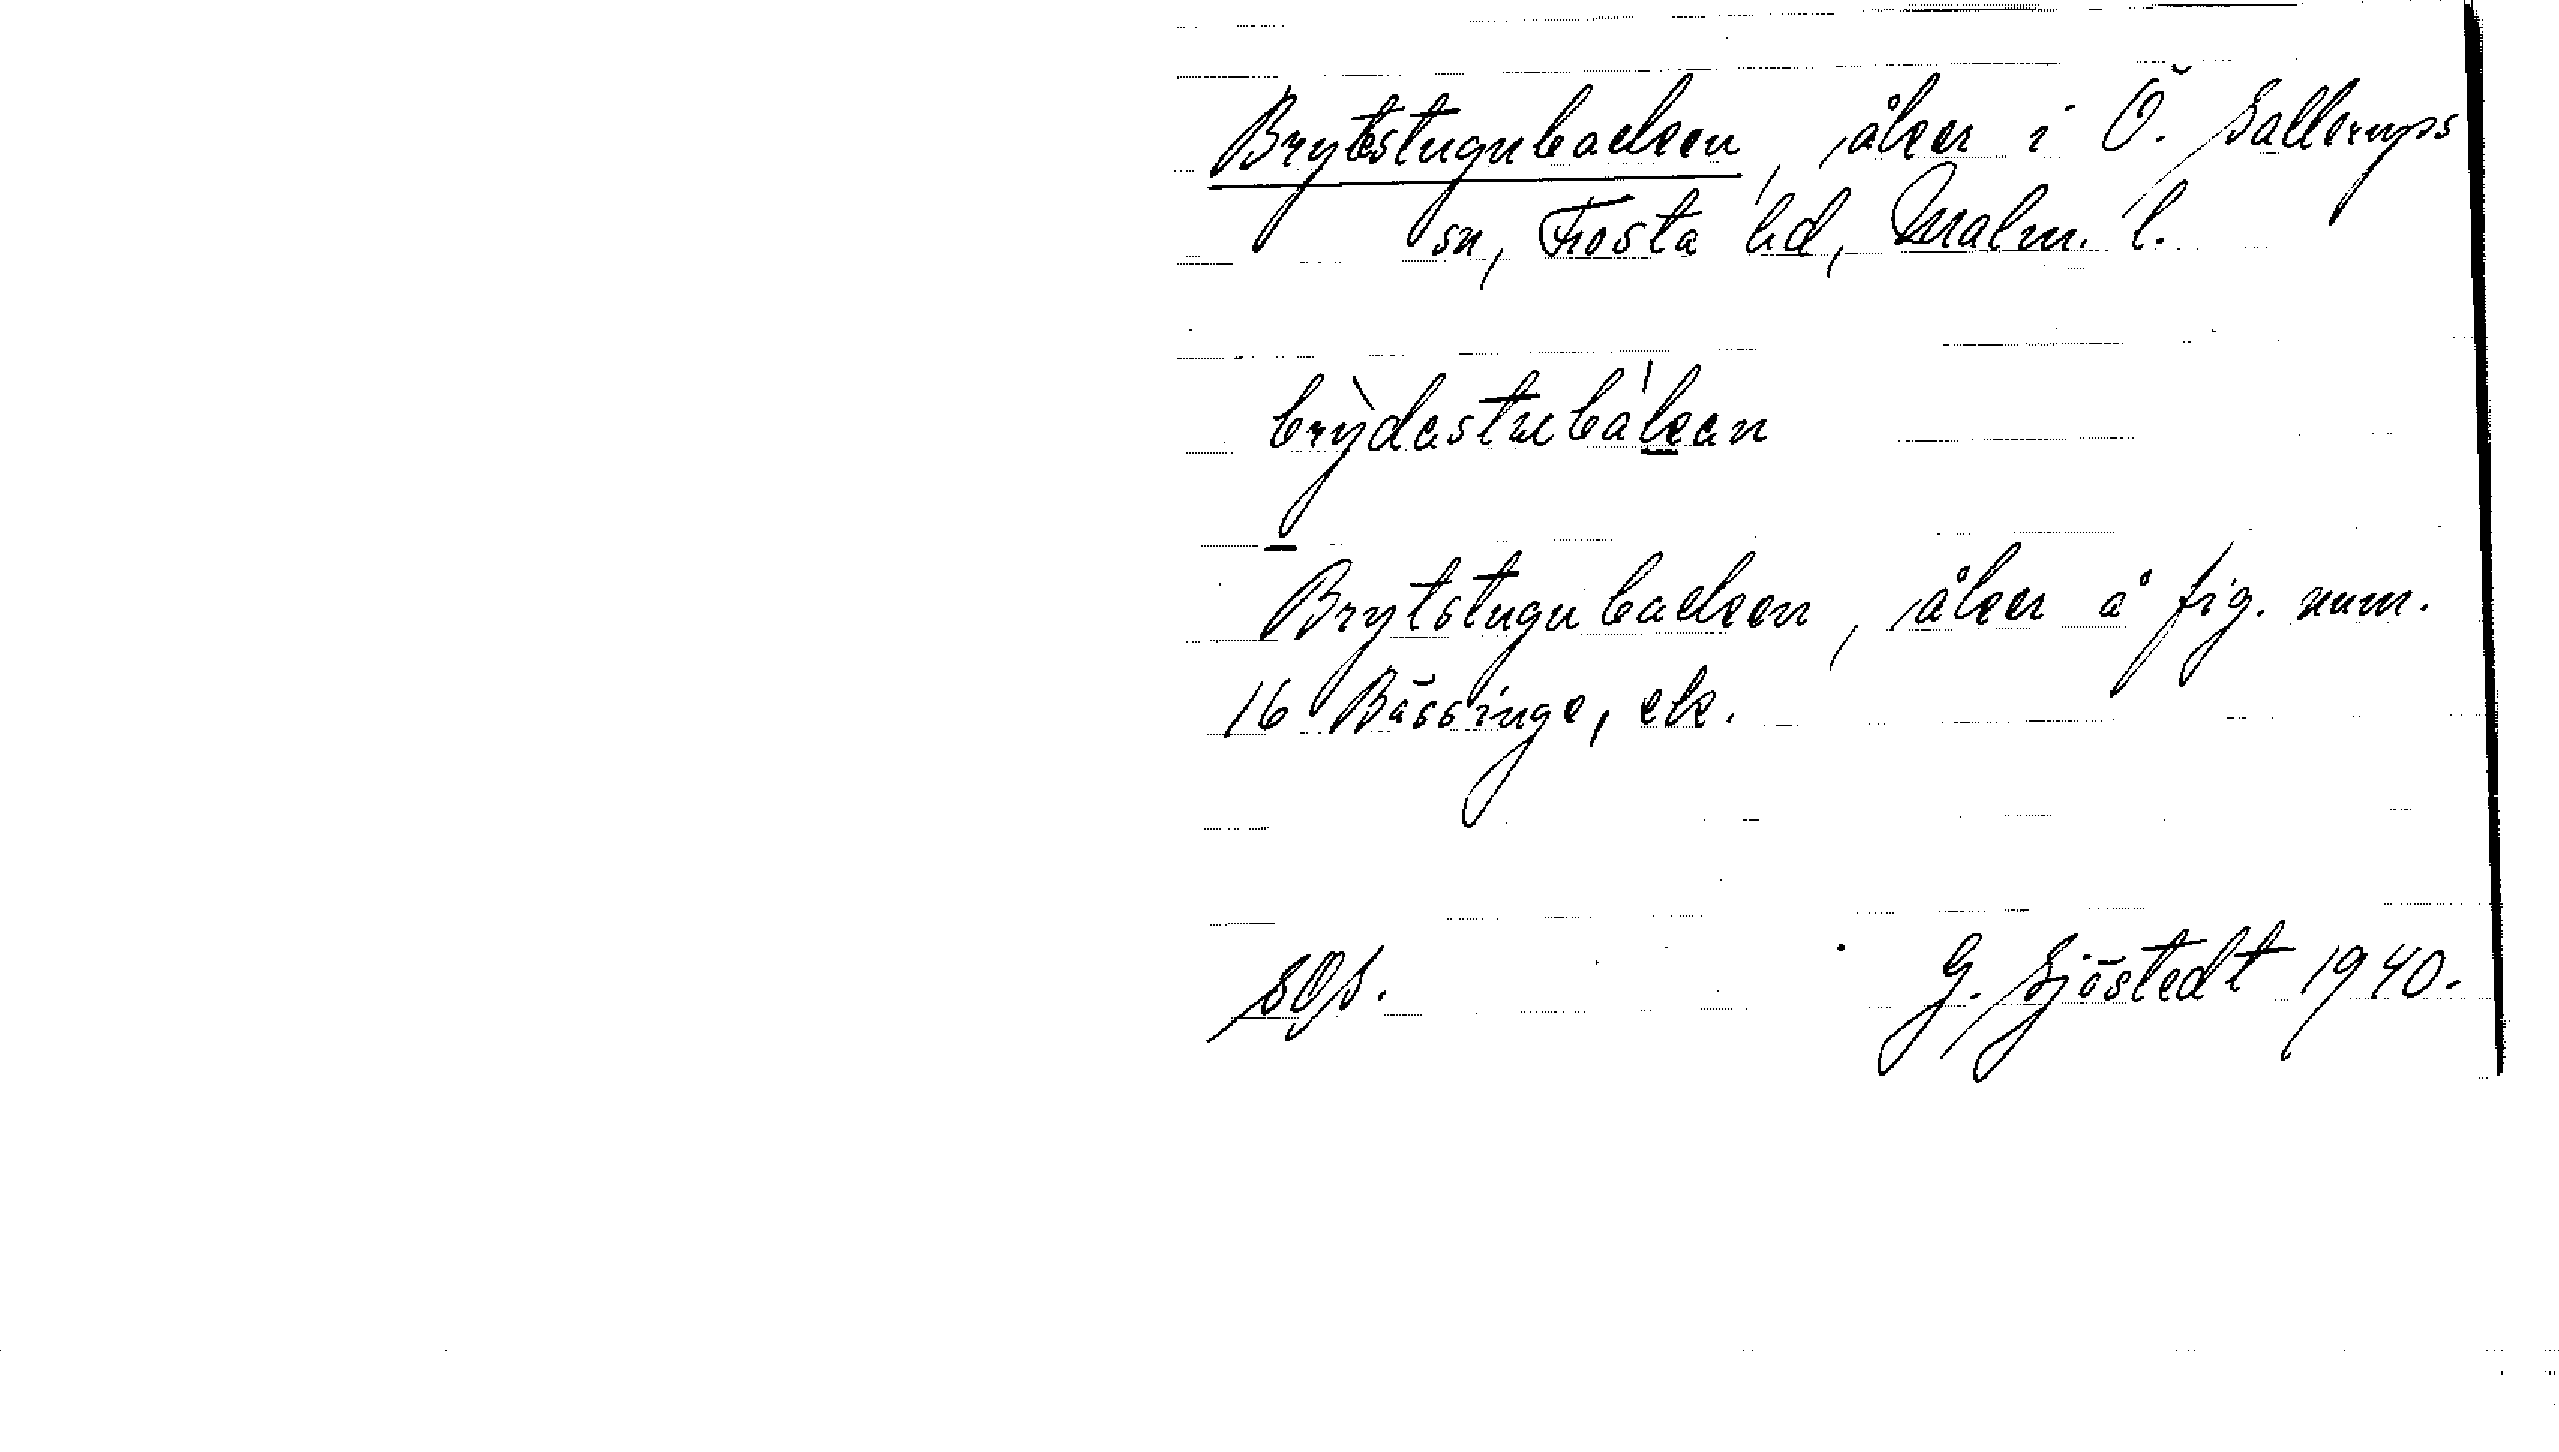 Brytstugubacken, åker i Ö. Sallerups
sn, Frosta hd, Malm. l.
brỳdestuebákan
Brytstugubacken, åker å fig. num.
16 Bässinge, ek.
SOS.
G. Sjöstedt 1940.